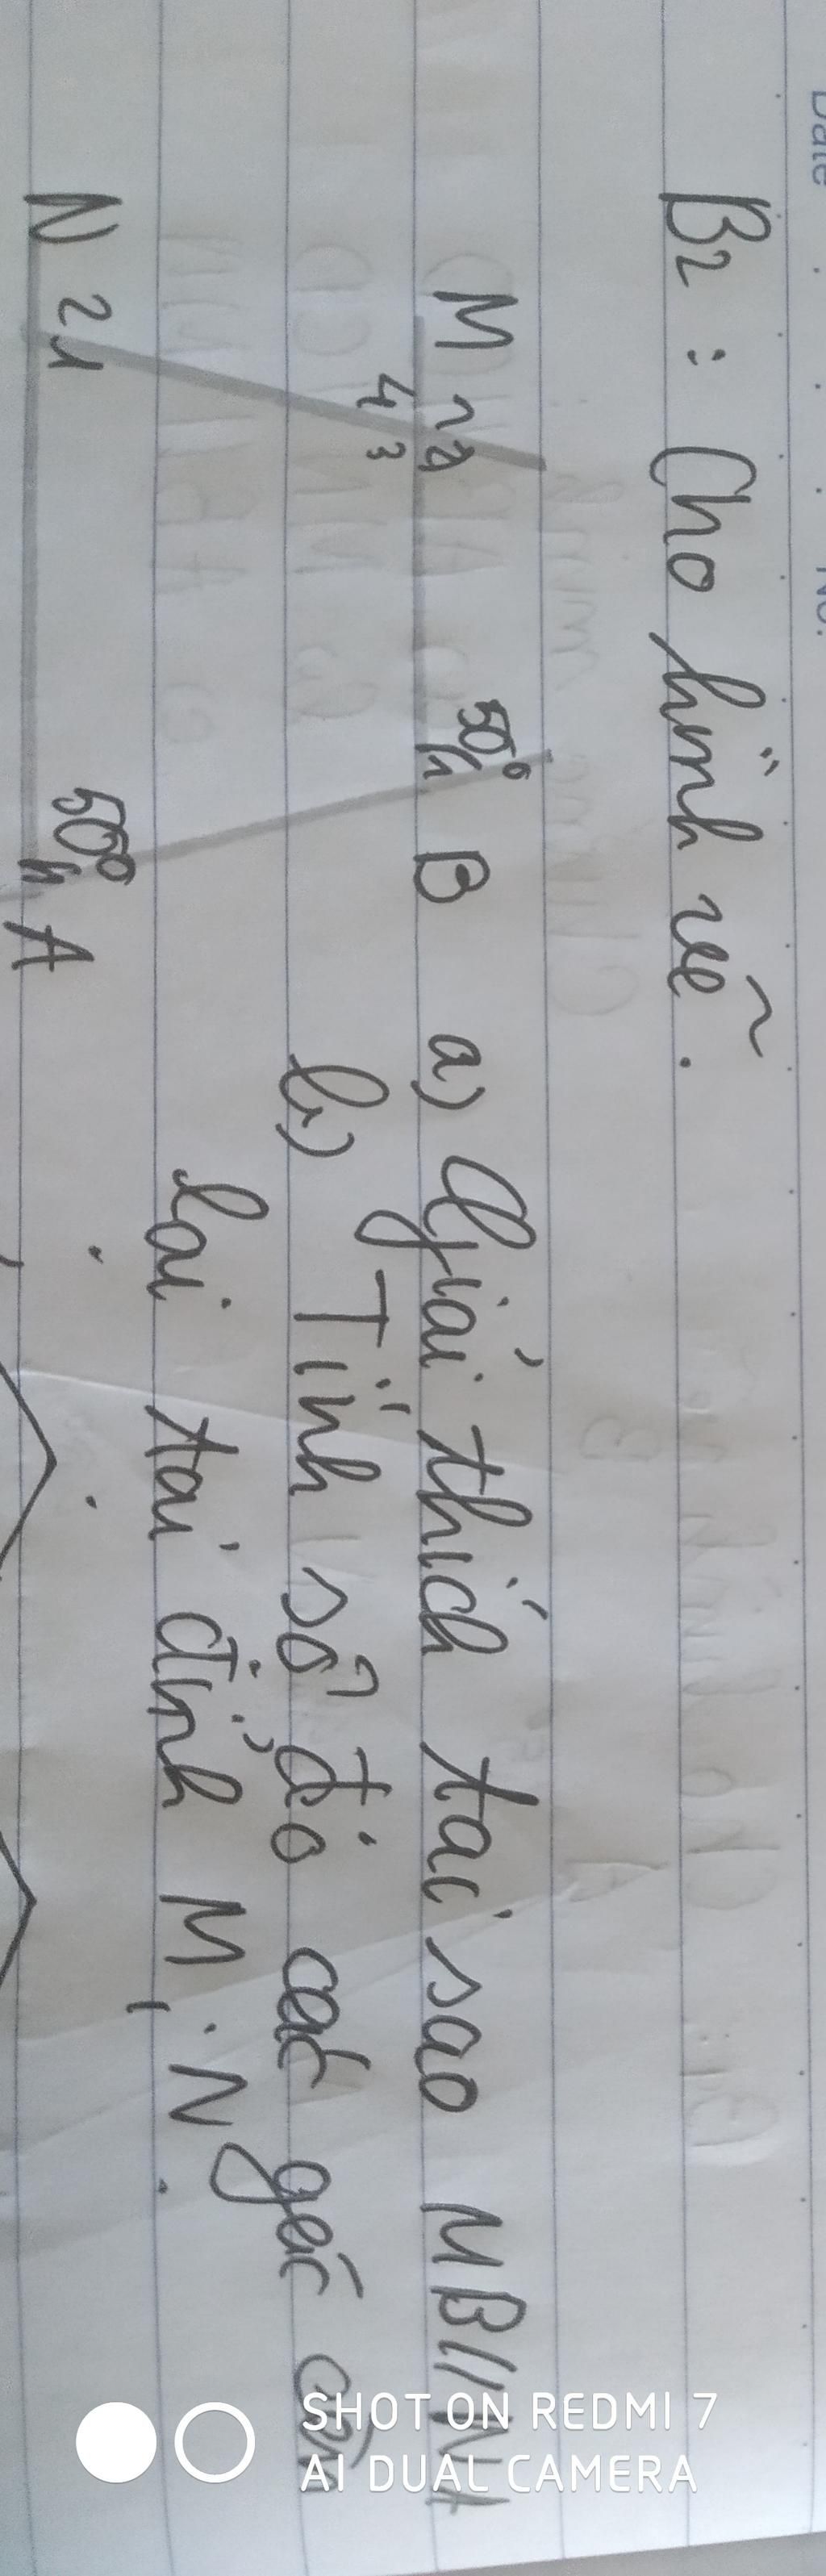 Date No.
B2 : Cho hình vẽ.
M 2 1
4 3
50° B
a) Giải thích tại sao MB//NA
b) Tính số đo các góc còn
lại tại đỉnh M, N.
N 2 1
50° A
SHOT ON REDMI 7
AI DUAL CAMERA